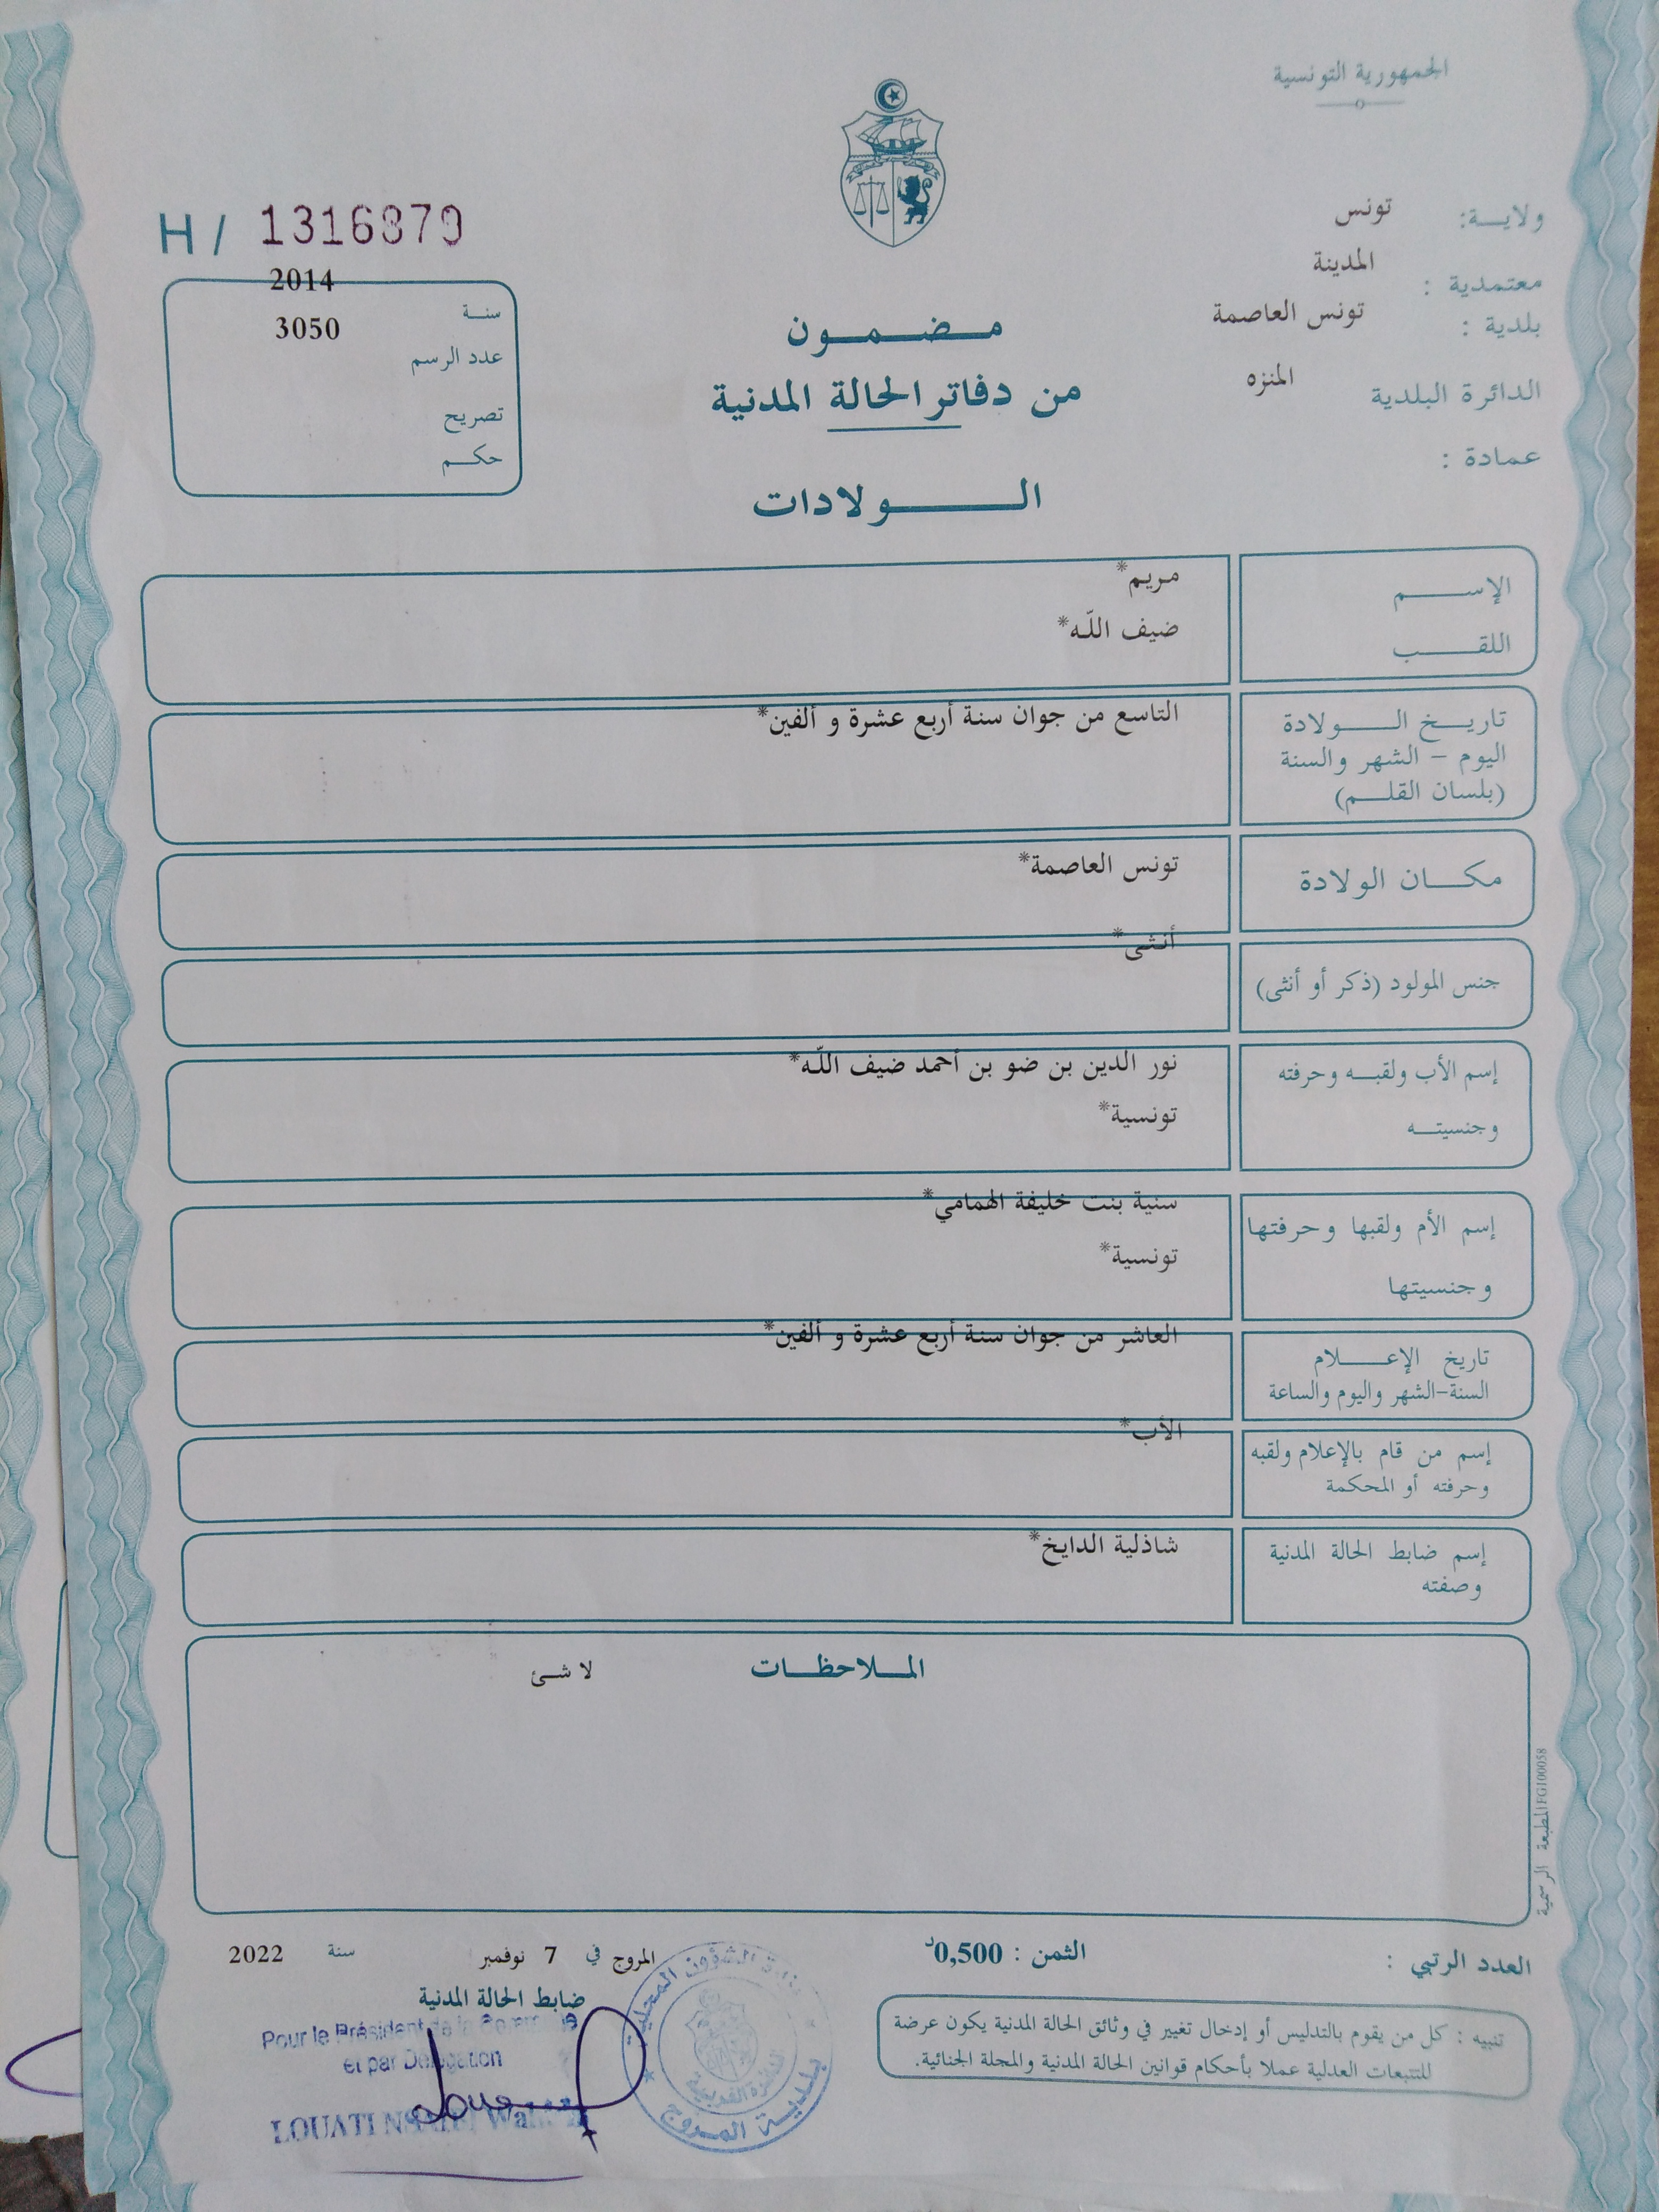 الجمهورية التونسية
ولايـــة: تونس
معتمدية : المدينة
بلدية : تونس العاصمة
الدائرة البلدية المنزه
عمادة :
H / 1316879
2014
سنـــة
3050
عدد الرسم
تصريح
حكـــم
مــضــمــون
من دفاتر الحالة المدنية
الــــولادات
الإســـــم
مريم*
اللقـــــب
ضيف اللّـه*
تاريــخ الــــولادة
اليوم – الشهر والسنة
(بلسان القلـــم)
التاسع من جوان سنة أربع عشرة و ألفين*
مكـــان الولادة
تونس العاصمة*
جنس المولود (ذكر أو أنثى)
أنـثـى*
إسم الأب ولقبـــه وحرفته
نور الدين بن ضو بن أحمد ضيف اللّـه*
وجنسيتـــه
تونسية*
إسم الأم ولقبها وحرفتها
سنية بنت خليفة الهمامي*
وجنسيتها
تونسية*
تاريخ الإعـــــلام
السنة-الشهر واليوم والساعة
العاشر من جوان سنة أربع عشرة و ألفين*
إسم من قام بالإعلام ولقبه
وحرفته أو المحكمة
الأب*
إسم ضابط الحالة المدنية
وصفته
شاذلية الدايخ*
المــلاحظــات
لا شـئ
المطبعة الرسمية
العدد الرتبي :
الثمن : 0,500د
المروج في 7 نوفمبر سنة 2022
ضابط الحالة المدنية
Pour le Président de la Commune
et par Délégation
LOUATI
بلدية المروج
تنبيه : كل من يقوم بالتدليس أو إدخال تغيير في وثائق الحالة المدنية يكون عرضة
للتتبعات العدلية عملا بأحكام قوانين الحالة المدنية والمجلة الجنائية.